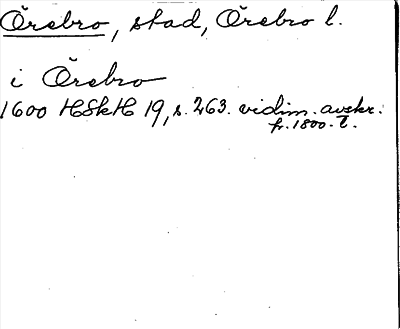 Örebro, stad, Örebro l.
i Örebro
1600 HSkH 19, s. 263. vidim. avskr.
fr. 1800-t.